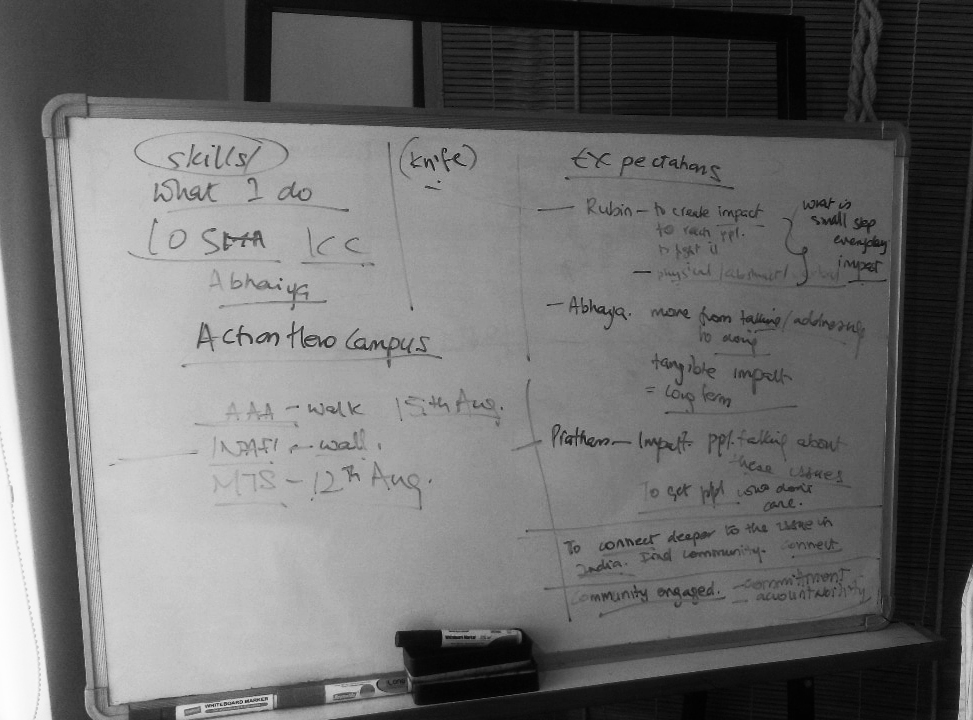 skills/
What I do
LOS KCC
Abhaiya
ActionHero Campus
AAA - walk 15th Aug.
- wall.
MTS - 12th Aug.
(knife)
Expectations
Rubin - to create impact
to reach ppl.
to fight it
- physical /
what is
small step
everyday
impact
- Abhaya. move from talking/addressing
to doing
tangible impact
= long term
Pratham - Impact. ppl. talking about
these issues
To get ppl who don't
care.
To connect deeper to the issue in
India. Find community. Connect
Community engaged. - commitment
accountability
WHITEBOARD MARKER